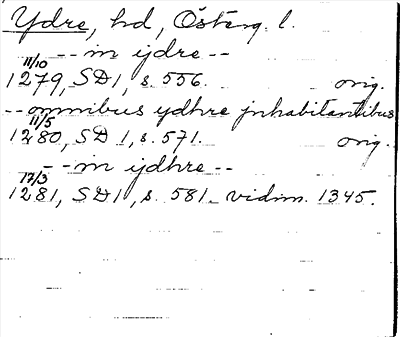 Ydre, hd, Österg. l.
-- in ydre --
11/10
1279, SD1, s. 556. orig.
-- omnibus ydhre jnhabitantibus
11/5
1280, SD 1, s. 571. orig.
-- in ydhre --
17/3
1281, SD1, s. 581. vidim. 1345.